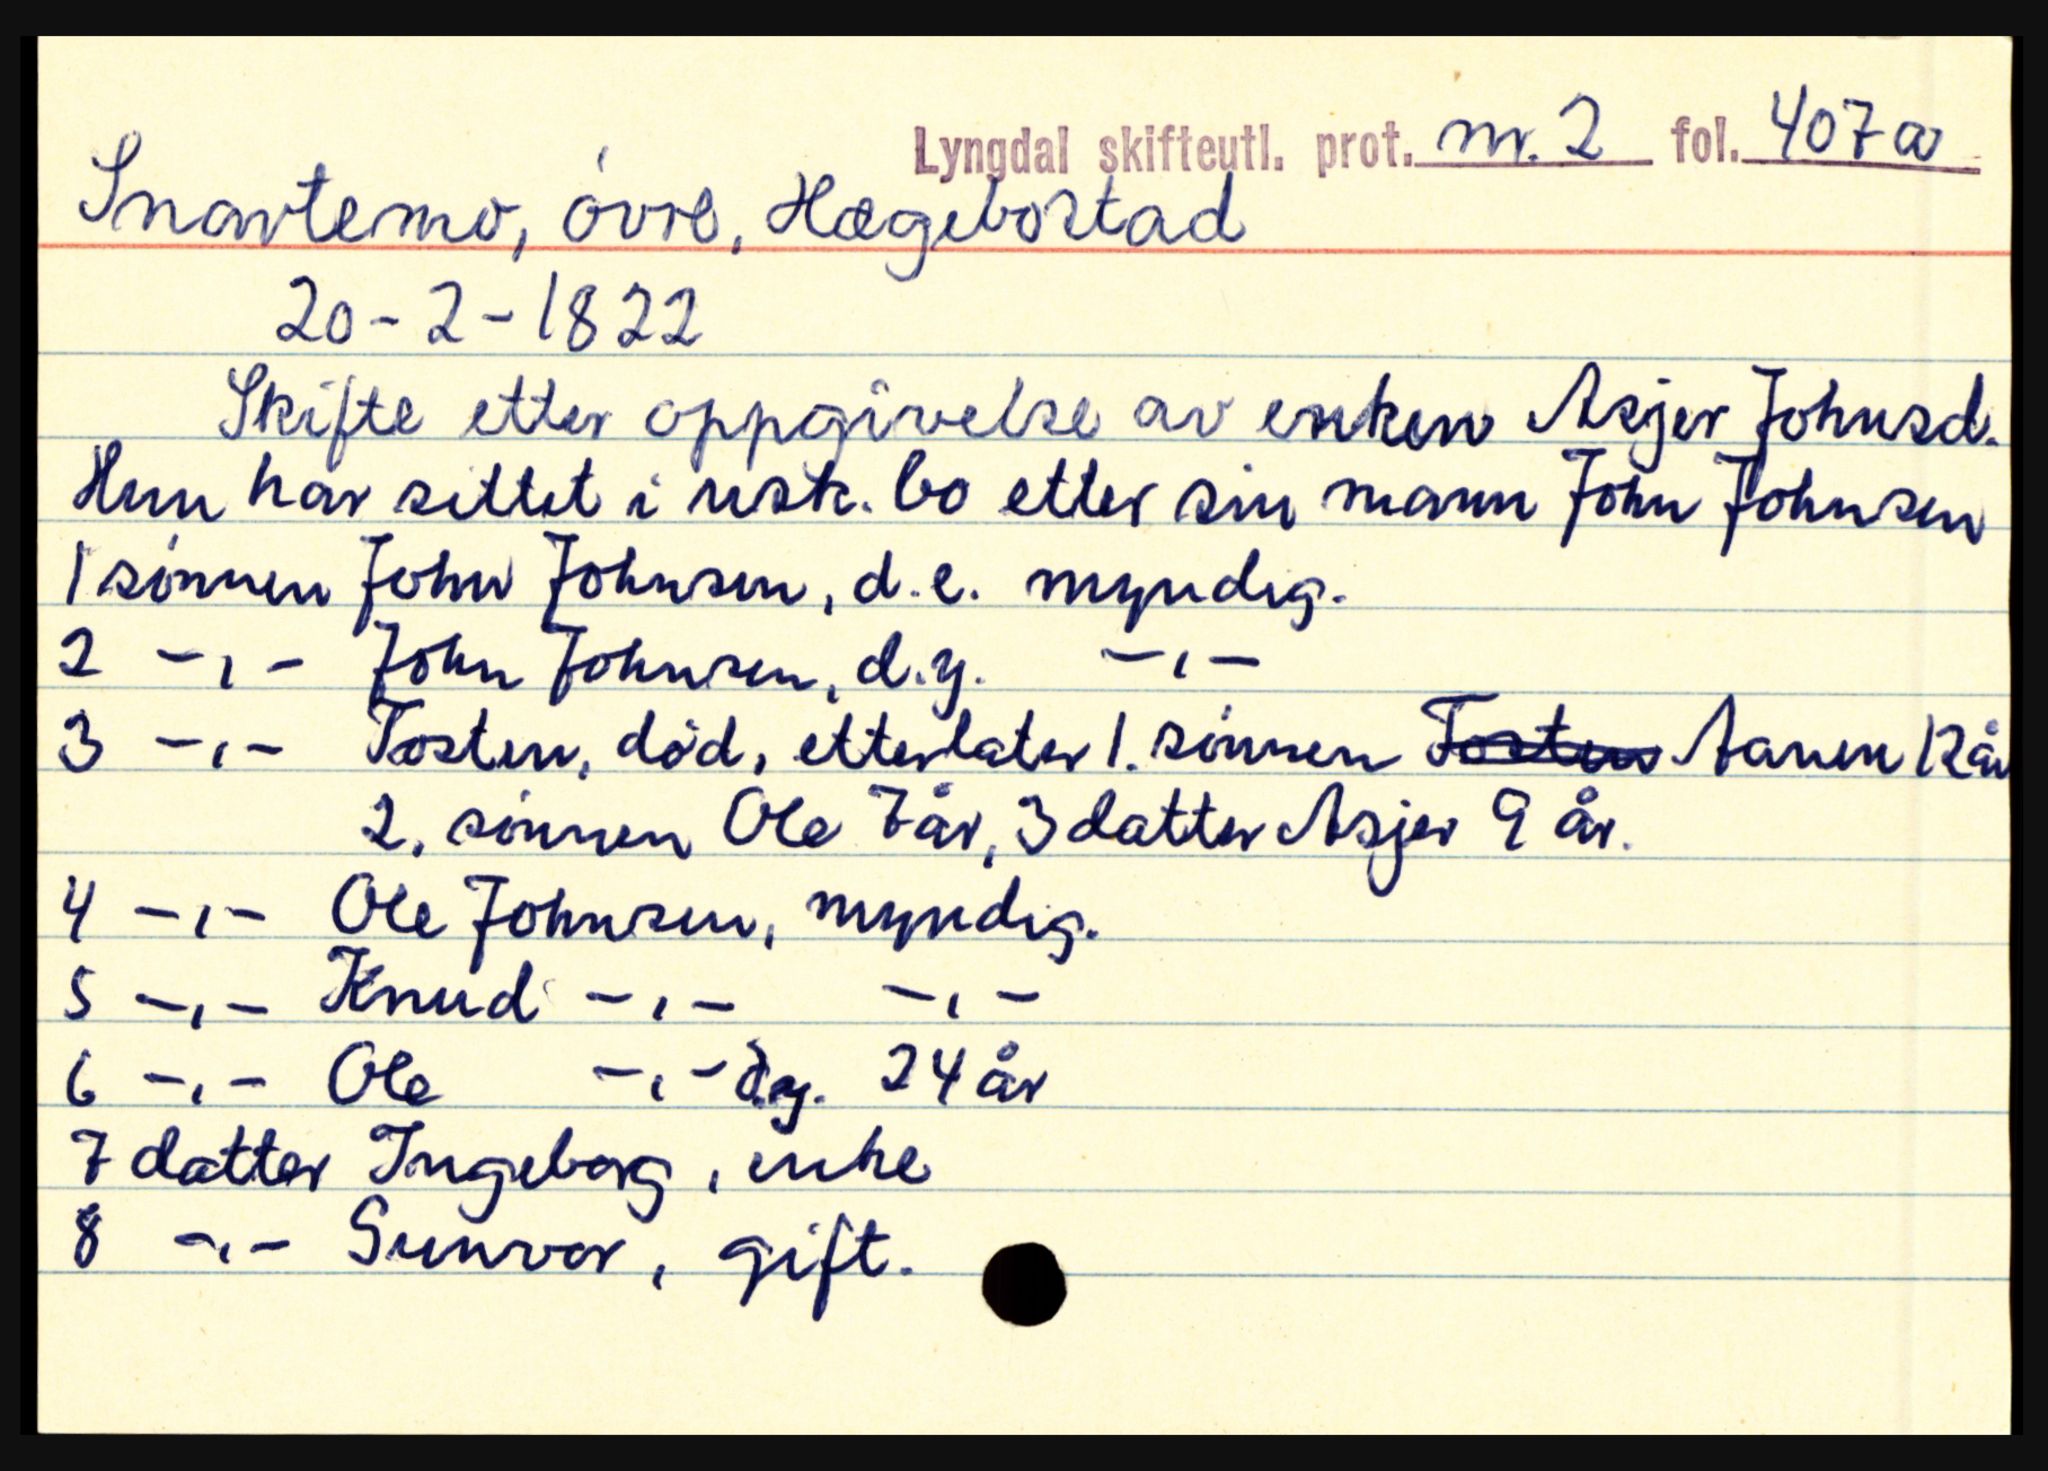 Lyngdal skifteutl. prot. nr. 2 fol. 407a
Snartemo, óvre, Hægebostad
20-2-1822
Skifte etter oppgivelse av enken Asjer Johnsd.
Hun har sittet i usk. bo etter sin mann John Johnsen
1 sónnen John Johnsen, d.e. myndig.
2 -,- John Johnsen, d.y. -,-
3 -,- Tosten, død, etterlater 1. sónnen Tosten Aanen 12 år
2. sónnen Ole 7 år, 3 datter Asjer 9 år.
4 -,- Ole Johnsen, myndig.
5 -,- Knud -,- -,-
6 -,- Ole -,- d.y. 24 år
7 datter Ingeborg, enke
8 -,- Sunvor, gift.